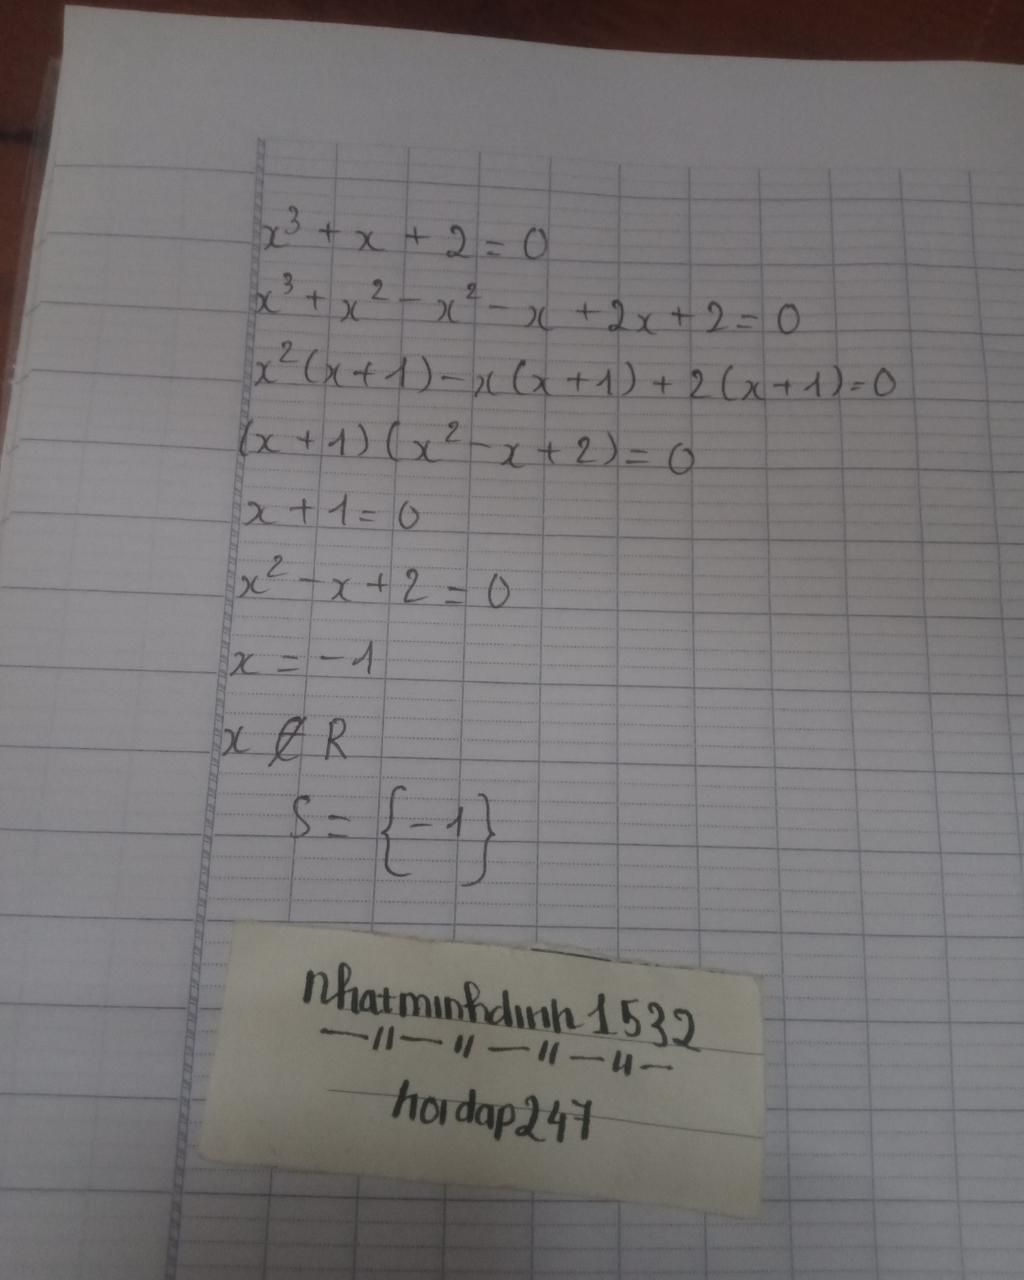 x³ + x + 2 = 0
x³ + x² - x² - x + 2x + 2 = 0
x²(x+1) - x(x+1) + 2(x+1) = 0
(x+1)(x² - x + 2) = 0
x + 1 = 0
x² - x + 2 = 0
x = -1
x ∉ R
S = {-1}
nhatminhdinh1532
hoidap247